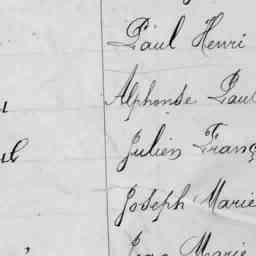 Paul Henri
Alphonse Paul
Julien Franç
Joseph Marie
Jean Marie